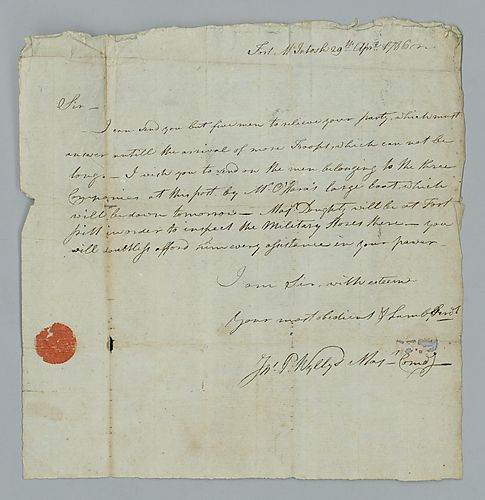 Fort McIntosh 29th Apr. 1786
Sir —
I can send you but five men to relieve your party, which must
answer untill the arrival of more Troops, which can not be
long — I wish you to send on the men belonging to the three
Companies at this post by Mr O'Hara's large boat, which
will be down tomorrow — Majr Doughty will be at Fort
pitt in order to inspect the Military Stores there — you
will doubtless afford him every assistance in your power
I am Sir, with esteem
Your most obedient & humb. Servt
Jn. P. Wyllys Maj — Comdg